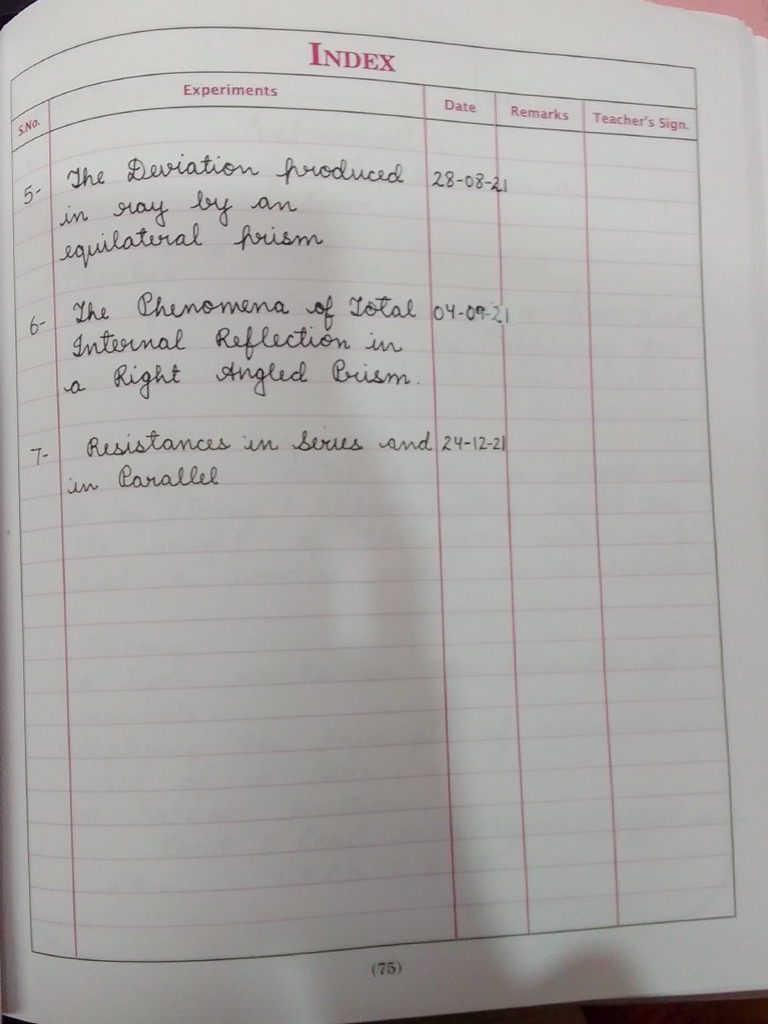 INDEX
S.No. Experiments Date Remarks Teacher's Sign.
5- The Deviation produced 28-08-21
in ray by an
equilateral prism
6- The Phenomena of Total 04-09-21
Internal Reflection in
a Right Angled Prism.
7- Resistances in Series and 24-12-21
in Parallel
(75)